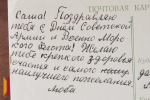 ПОЧТОВАЯ КАРТ
Саша! Поздравляю
тебя с Днём Советской
Армии и Военно Морс
кого Флота! Желаю
тебе крепкого здоровья
счастья и самого
наилучшего пожелания.
Люба